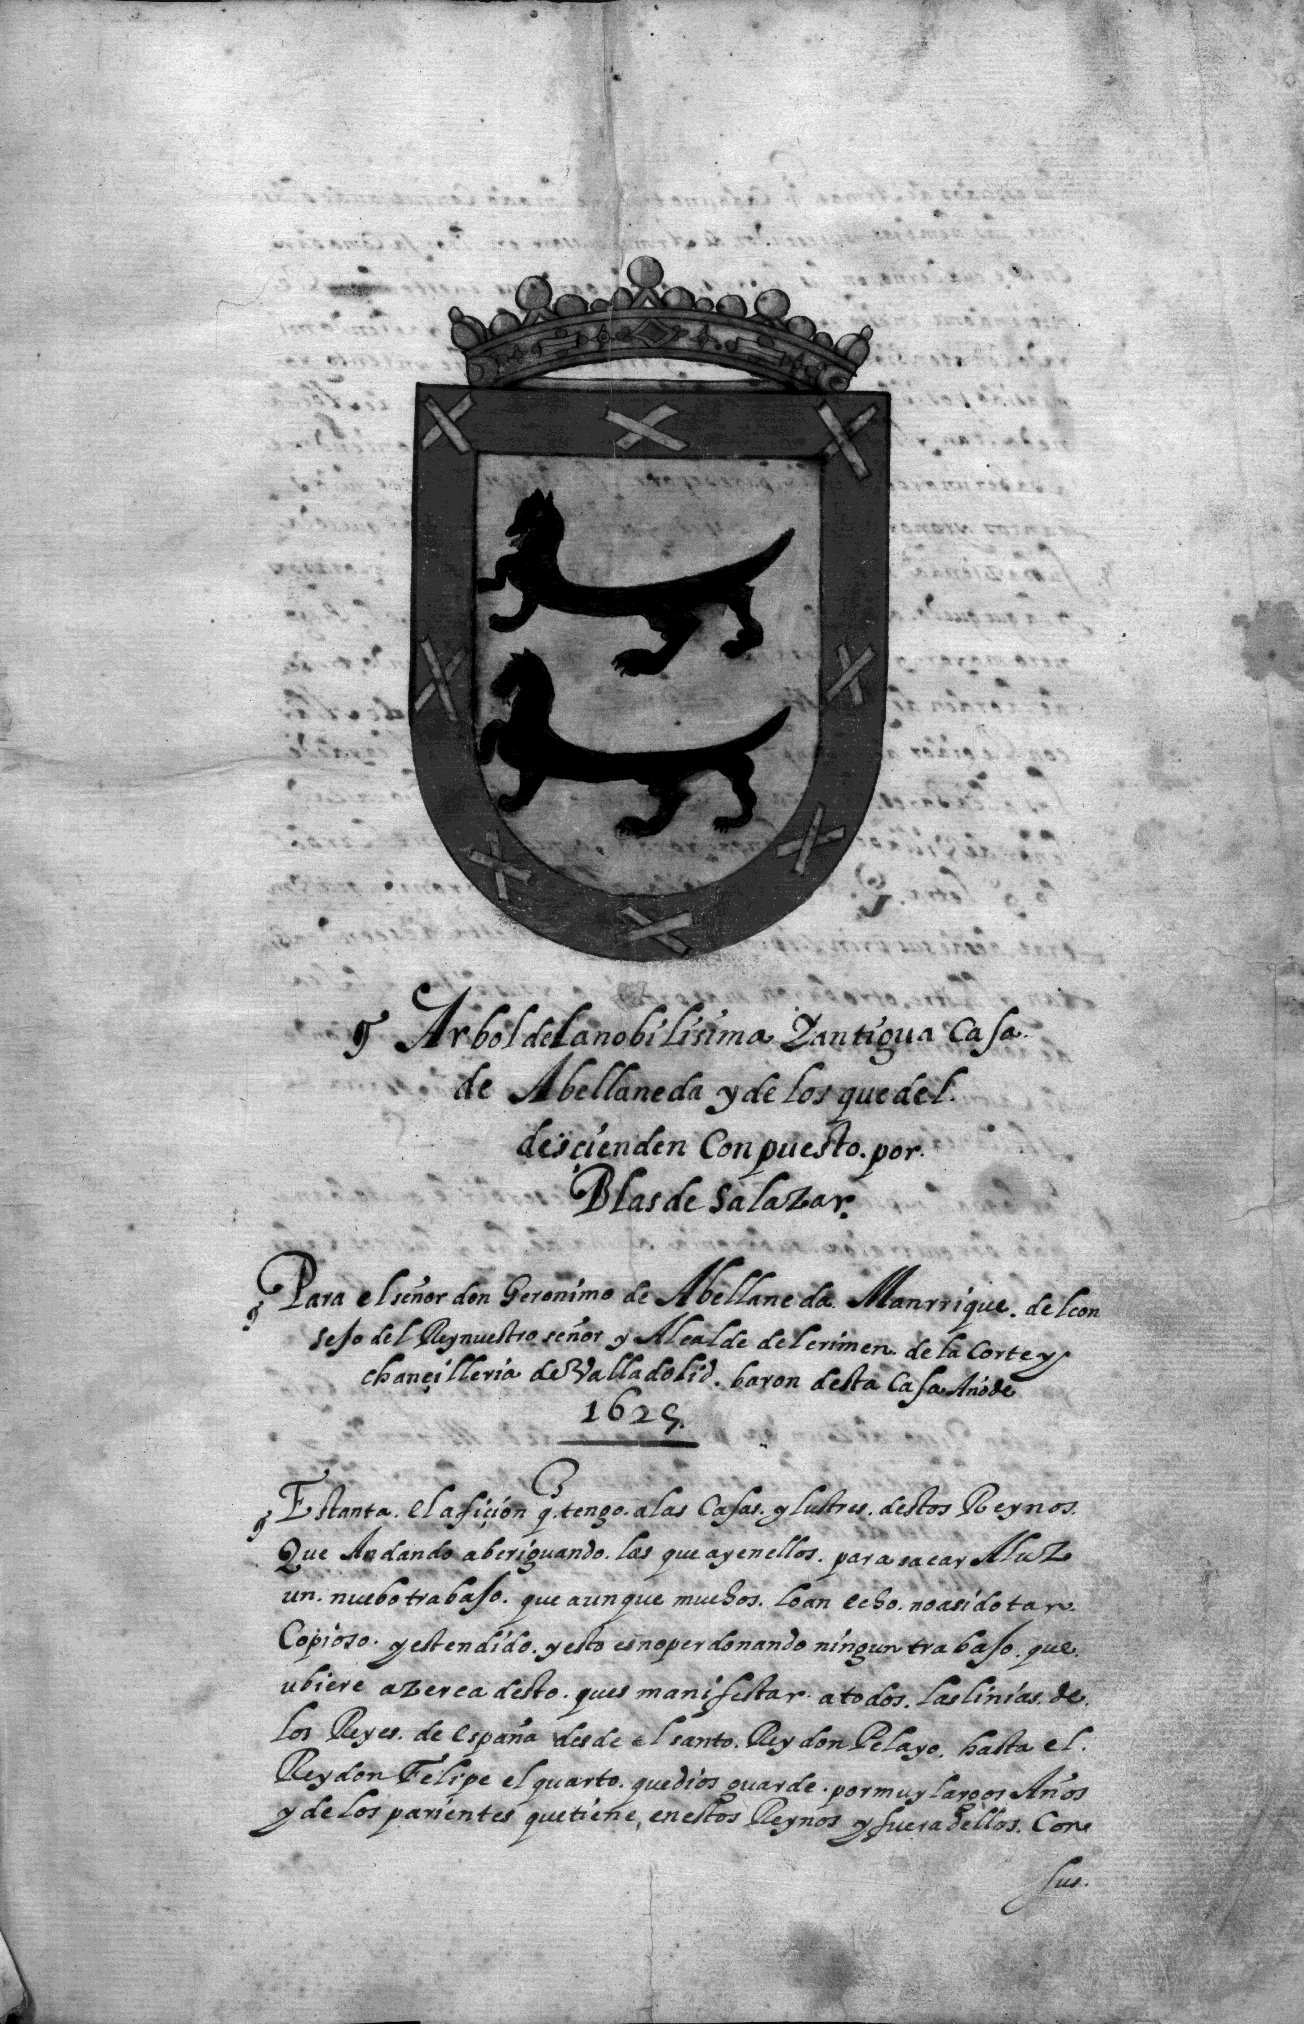 Arbol de la nobilisima Y antigua Casa.
de Abellaneda y de los que del.
desçienden Conpuesto. por.
Blas de Salazar.
Para el señor don Geronimo de Abellaneda. Manrrique. del con
sejo del Rey nuestro señor y Alcalde del crimen. de la Corte y
chançilleria de Valladolid. baron desta Casa Año de
1625.
Es tanta. el afiçión q̃. tengo. a las Casas. y lustres. destos Reynos.
Que Andando aberiguando. las que ay en ellos. para sacar A luz
un. nuebo trabajo. que aunque muchos. lo an echo. no a sido tan.
Copioso. y estendido. y esto es no perdonando ningun trabajo. que.
ubiere azerca desto. ques manifestar. a todos. las linias. de.
los Reyes. de españa desde el santo. Rey don Pelayo. hasta el.
Rey don Felipe el quarto. que dios guarde. por muy largos Años
y de los parientes que tiene, en estos Reynos y fuera dellos. Con
sus.